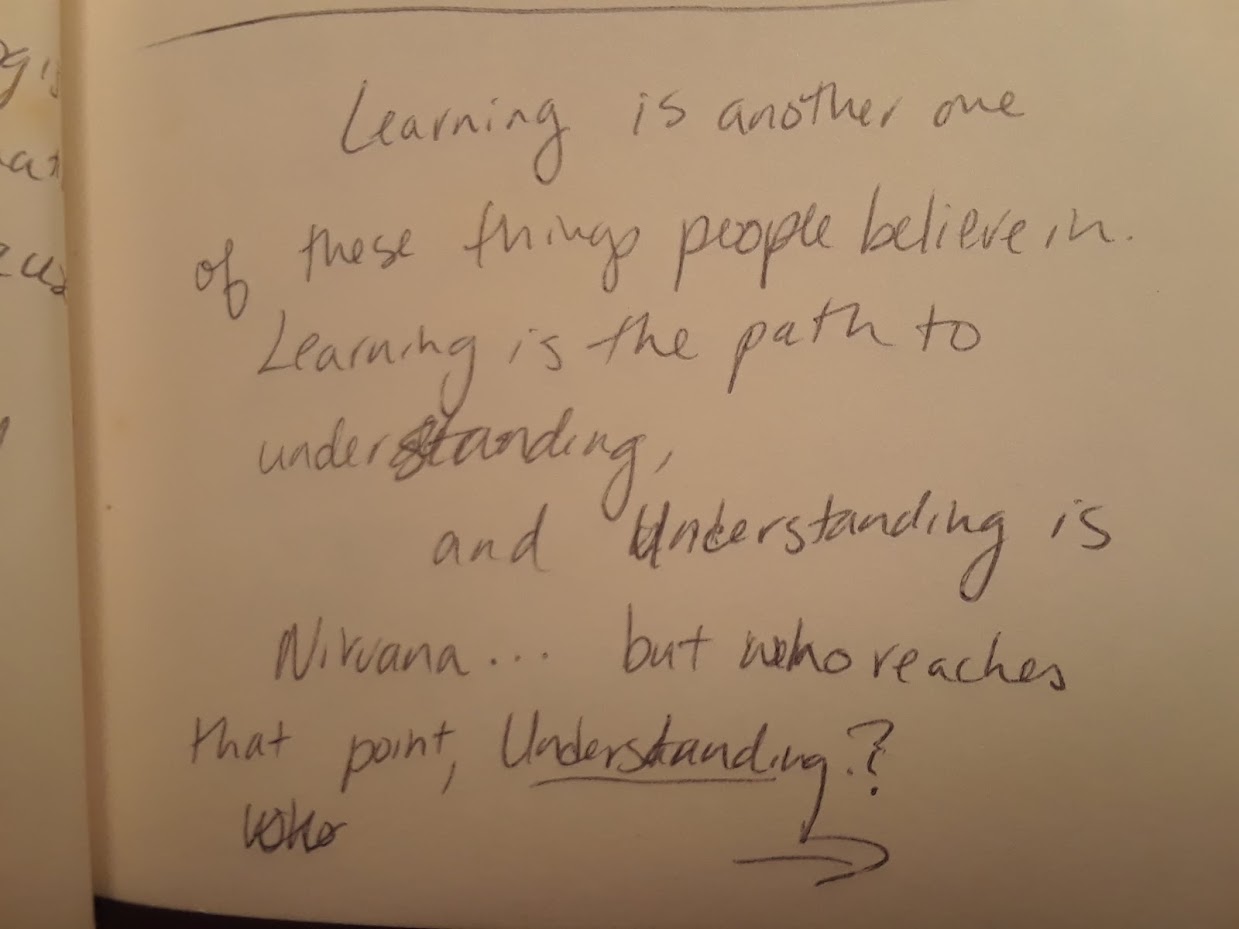 Learning is another one
of these things people believe in.
Learning is the path to
understanding,
and Understanding is
Nirvana... but who reaches
that point, Understanding?
Who